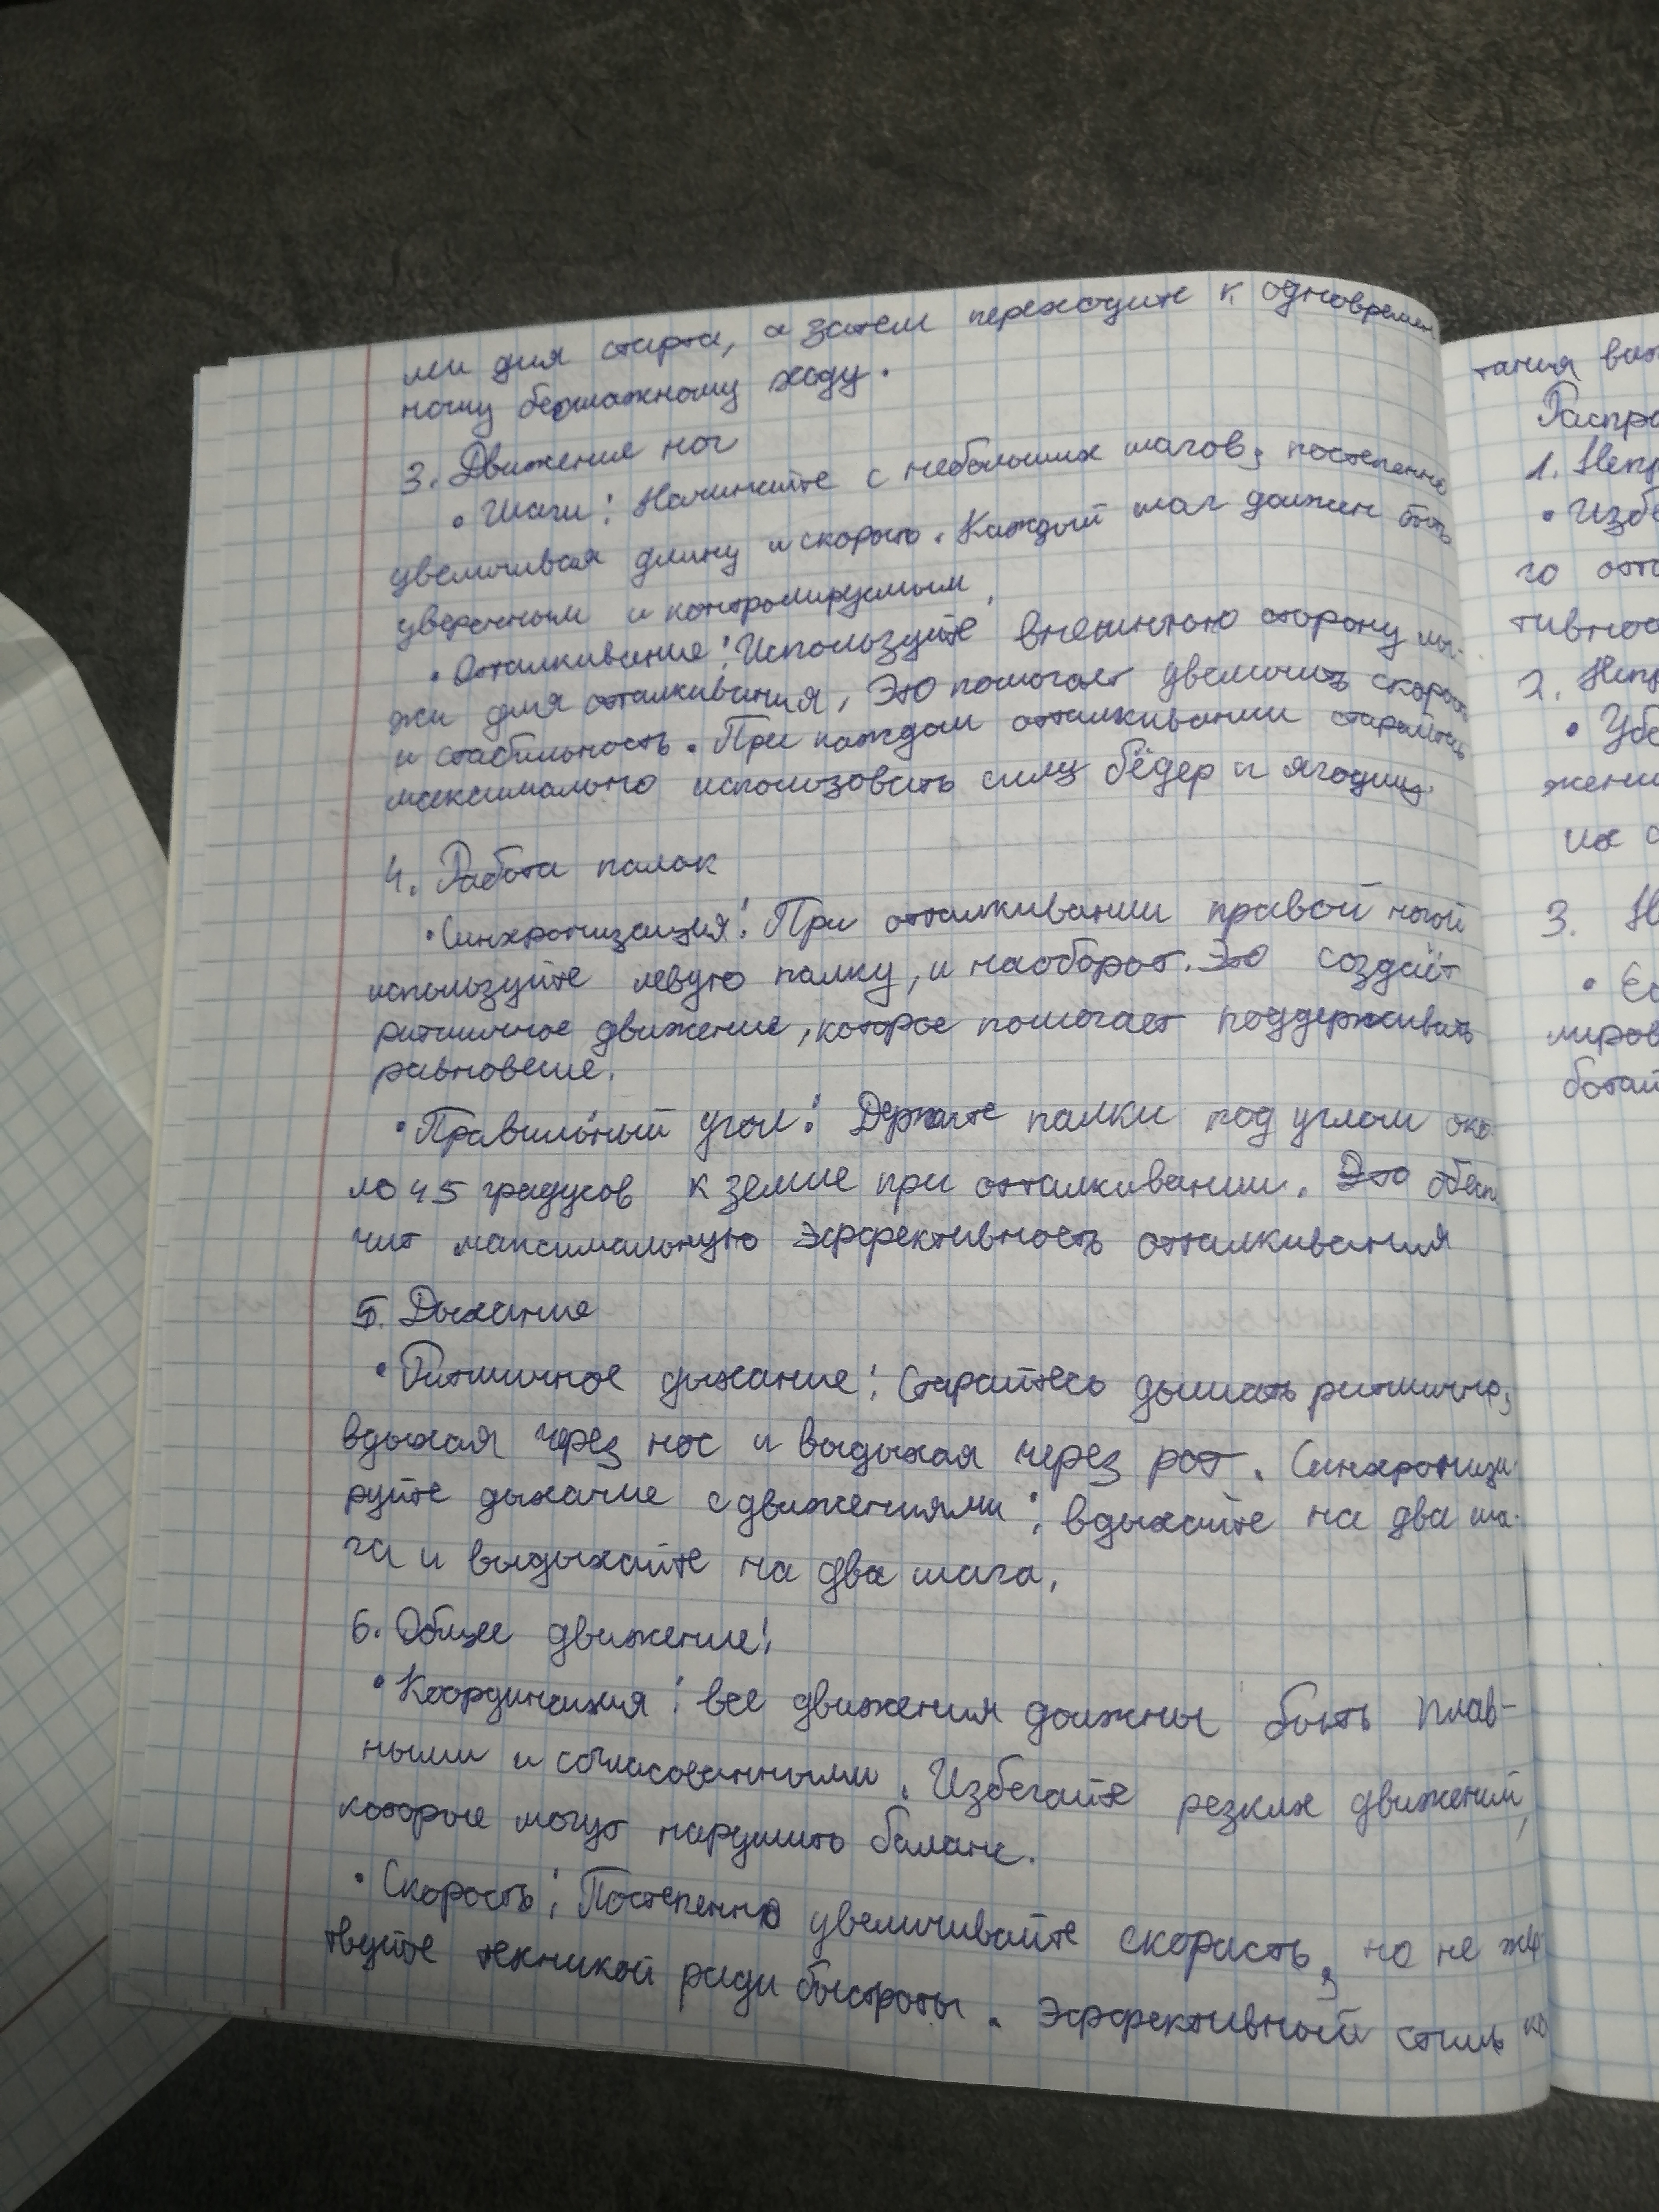 ми для старта, а затем переходите к одновремен
ному бесшажному ходу.
3. Движение ног
• Шаги: Начинайте с небольших шагов, постепенно
увеличивая длину и скорость. Каждый шаг должен быть
уверенным и контролируемым.
• Отталкивание: Используйте внешнюю сторону лы-
жи для отталкивания. Это помогает увеличить скорость
и стабильность. При каждом отталкивании старайтесь
максимально использовать силу бёдер и ягодиц.
4. Работа палок
• Синхронизация: При отталкивании правой ногой
используйте левую палку, и наоборот. Это создаёт
ритмичное движение, которое помогает поддерживать
равновесие.
• Правильный угол: Держите палки под углом око-
ло 45 градусов к земле при отталкивании. Это обеспе
чит максимальную эффективность отталкивания
5. Дыхание
• Ритмичное дыхание: Старайтесь дышать ритмично,
вдыхая через нос и выдыхая через рот. Синхронизи-
руйте дыхание с движениями: вдыхайте на два ша-
га и выдыхайте на два шага.
6. Общее движение:
• Координация: все движения должны быть плав-
ными и согласованными. Избегайте резких движений,
которые могут нарушить баланс.
• Скорость: Постепенно увеличивайте скорасть, но не жер
твуйте техникой ради быстроты. Эффективный стиль ка
тания важ
Распро
1. Непр
• Избе
го отт
тивнос
2. Непр
• Убе
жени
их с
3. Н
• Ес
миров
ботай